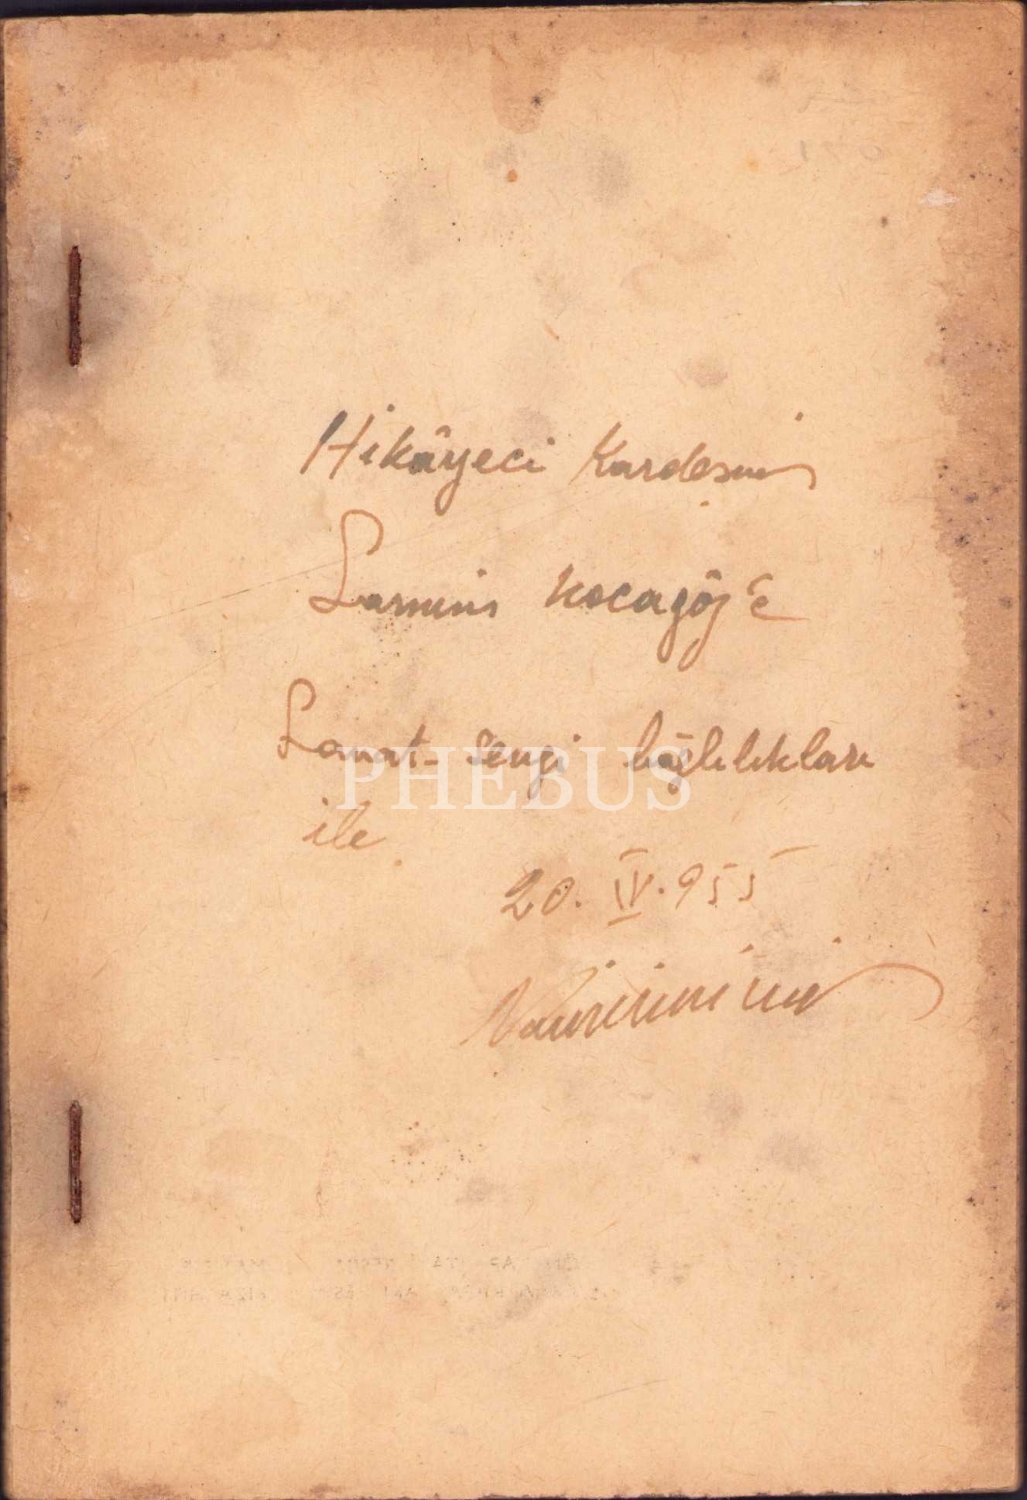 Hikâyeci Kardeşim
Samim Kocagöz'e
Sanat-sevgi bağlılıkları
ile.
20. IV. 955
PHEBUS